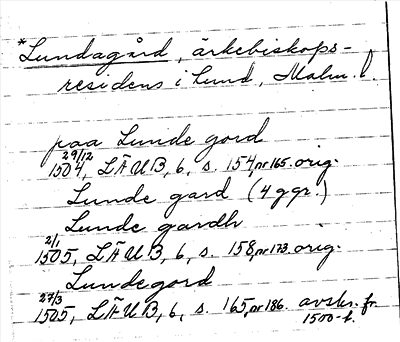 *Lundagård, ärkebiskops-
residens i Lund, Malm. l.
paa Lunde gord
29/12 1504, LÄUB, 6, s. 154, nr 165. orig.
Lunde gard (4 ggr.)
Lunde gardh
2/1 1505, LÄUB, 6, s. 158, nr 173. orig.
Lundegord
27/3 1505, LÄUB, 6, s. 165, nr 186. avskr. fr.
1500-t.